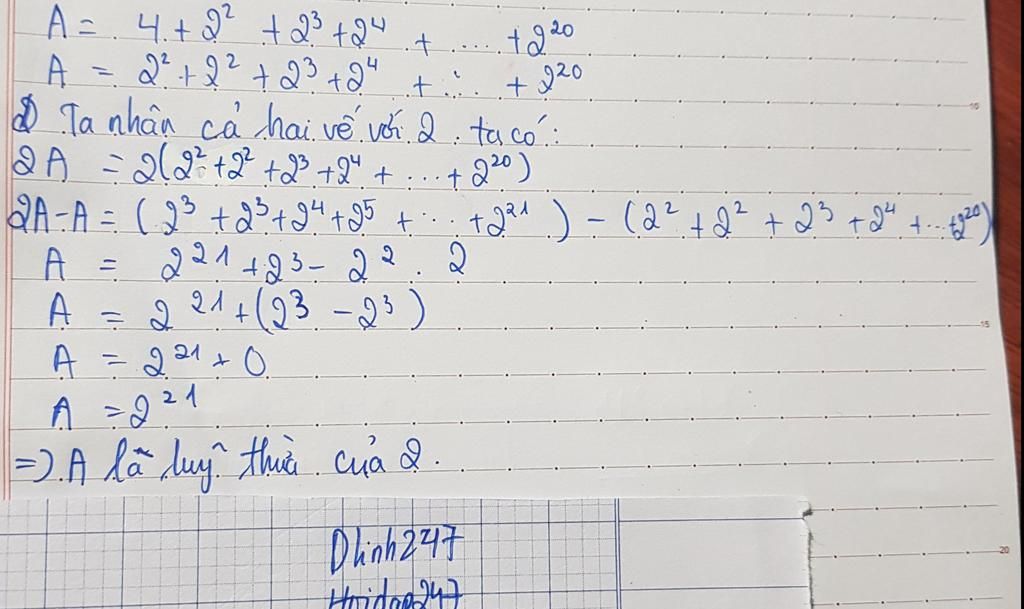 A = 4 + 2² + 2³ + 2⁴ + ... + 2²⁰
A = 2² + 2² + 2³ + 2⁴ + ... + 2²⁰
Ta nhân cả hai vế với 2 ta có:
2A = 2(2² + 2² + 2³ + 2⁴ + ... + 2²⁰)
2A - A = (2³ + 2³ + 2⁴ + 2⁵ + ... + 2²¹) - (2² + 2² + 2³ + 2⁴ + ... + 2²⁰)
A = 2²¹ + 2³ - 2² . 2
A = 2²¹ + (2³ - 2³)
A = 2²¹ + 0
A = 2²¹
=> A lã luỹ thừa của 2.
Dlinh247
Hoidap247
10
15
20